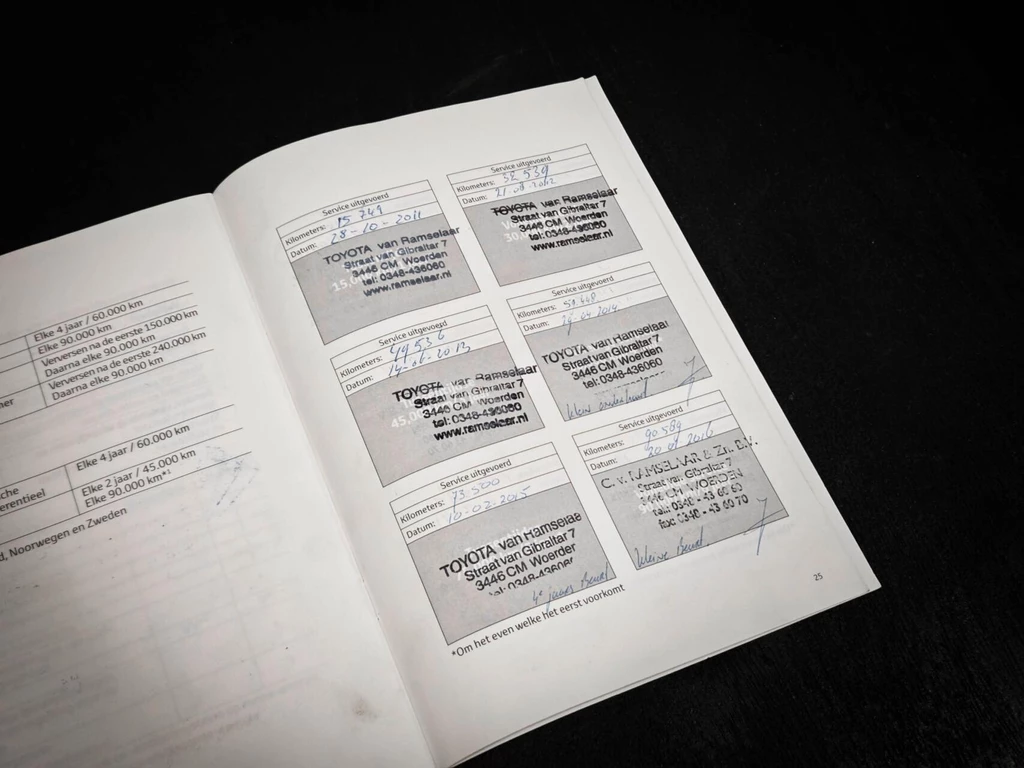 Elke 4 jaar / 60.000 km
Elke 90.000 km
Verversen na de eerste 150.000 km
Daarna elke 90.000 km
Verversen na de eerste 240.000 km
Daarna elke 90.000 km
Elke 4 jaar / 60.000 km
Elke 2 jaar / 45.000 km
Elke 90.000 km*³
Noorwegen en Zweden
Service uitgevoerd
Kilometers: 15 749
Datum: 28-10-2011
TOYOTA van Ramselaar
Straat van Gibraltar 7
3446 CM Woerden
tel: 0348-436060
www.ramselaar.nl
Service uitgevoerd
Kilometers: 32 539
Datum: 21-08-2012
TOYOTA van Ramselaar
Straat van Gibraltar 7
3446 CM Woerden
tel: 0348-436060
www.ramselaar.nl
Service uitgevoerd
Kilometers: 49 536
Datum: 14-06-2013
TOYOTA van Ramselaar
Straat van Gibraltar 7
3446 CM Woerden
tel: 0348-436060
www.ramselaar.nl
Service uitgevoerd
Kilometers:
Datum:
TOYOTA van Ramselaar
Straat van Gibraltar 7
3446 CM Woerden
tel: 0348-436060
kleine onderhoud
Service uitgevoerd
Kilometers: 73 500
Datum: 10-02-2015
TOYOTA van Ramselaa
Straat van Gibraltar 7
3446 CM Woerder
4e jaars Beurt
Service uitgevoerd
Kilometers: 90 589
Datum:
C. v. RAMSELAAR & Zn. B.V.
Straat van Gibraltar 7
3446 CM WOERDEN
tel.: 0348 - 43 60 60
fax: 0348 - 43 60 70
kleine Beurt
*Om het even welke het eerst voorkomt
25